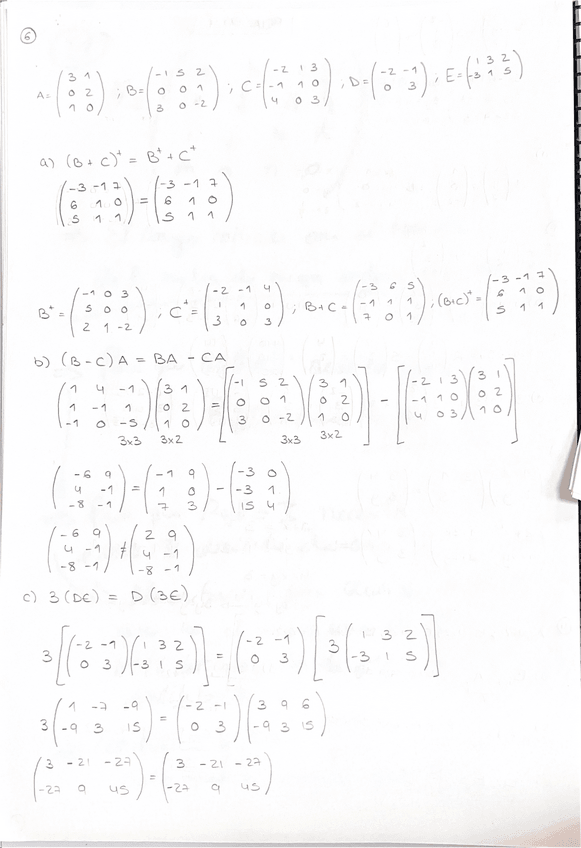 6
A = (3 1; 0 2; 1 0) ; B = (-1 5 2; 0 0 1; 3 0 -2) ; C = (-2 1 3; -1 1 0; 4 0 3) , D = (-2 -1; 0 3) , E = (1 3 2; -3 1 5)
a) (B + C)^t = B^t + C^t
(-3 -1 7; 6 1 0; 5 1 1) = (-3 -1 7; 6 1 0; 5 1 1)
B^t = (-1 0 3; 5 0 0; 2 1 -2) ; C^t = (-2 -1 4; 1 1 0; 3 0 3) ; B+C = (-3 6 5; -1 1 1; 7 0 1) ; (B+C)^t = (-3 -1 7; 6 1 0; 5 1 1)
b) (B - C) A = BA - CA
(1 4 -1; 1 -1 1; -1 0 -5) (3 1; 0 2; 1 0) = [(-1 5 2; 0 0 1; 3 0 -2) (3 1; 0 2; 1 0)] - [(-2 1 3; -1 1 0; 4 0 3) (3 1; 0 2; 1 0)]
3x3 3x2 3x3 3x2
(-6 9; 4 -1; -8 -1) = (-1 9; 1 0; 7 3) - (-3 0; -3 1; 15 4)
(-6 9; 4 -1; -8 -1) ≠ (2 9; 4 -1; -8 -1)
c) 3 (DE) = D (3E)
3 [(-2 -1; 0 3) (1 3 2; -3 1 5)] = (-2 -1; 0 3) [3 (1 3 2; -3 1 5)]
3 (1 -7 -9; -9 3 15) = (-2 -1; 0 3) (3 9 6; -9 3 15)
(3 -21 -27; -27 9 45) = (3 -21 -27; -27 9 45)